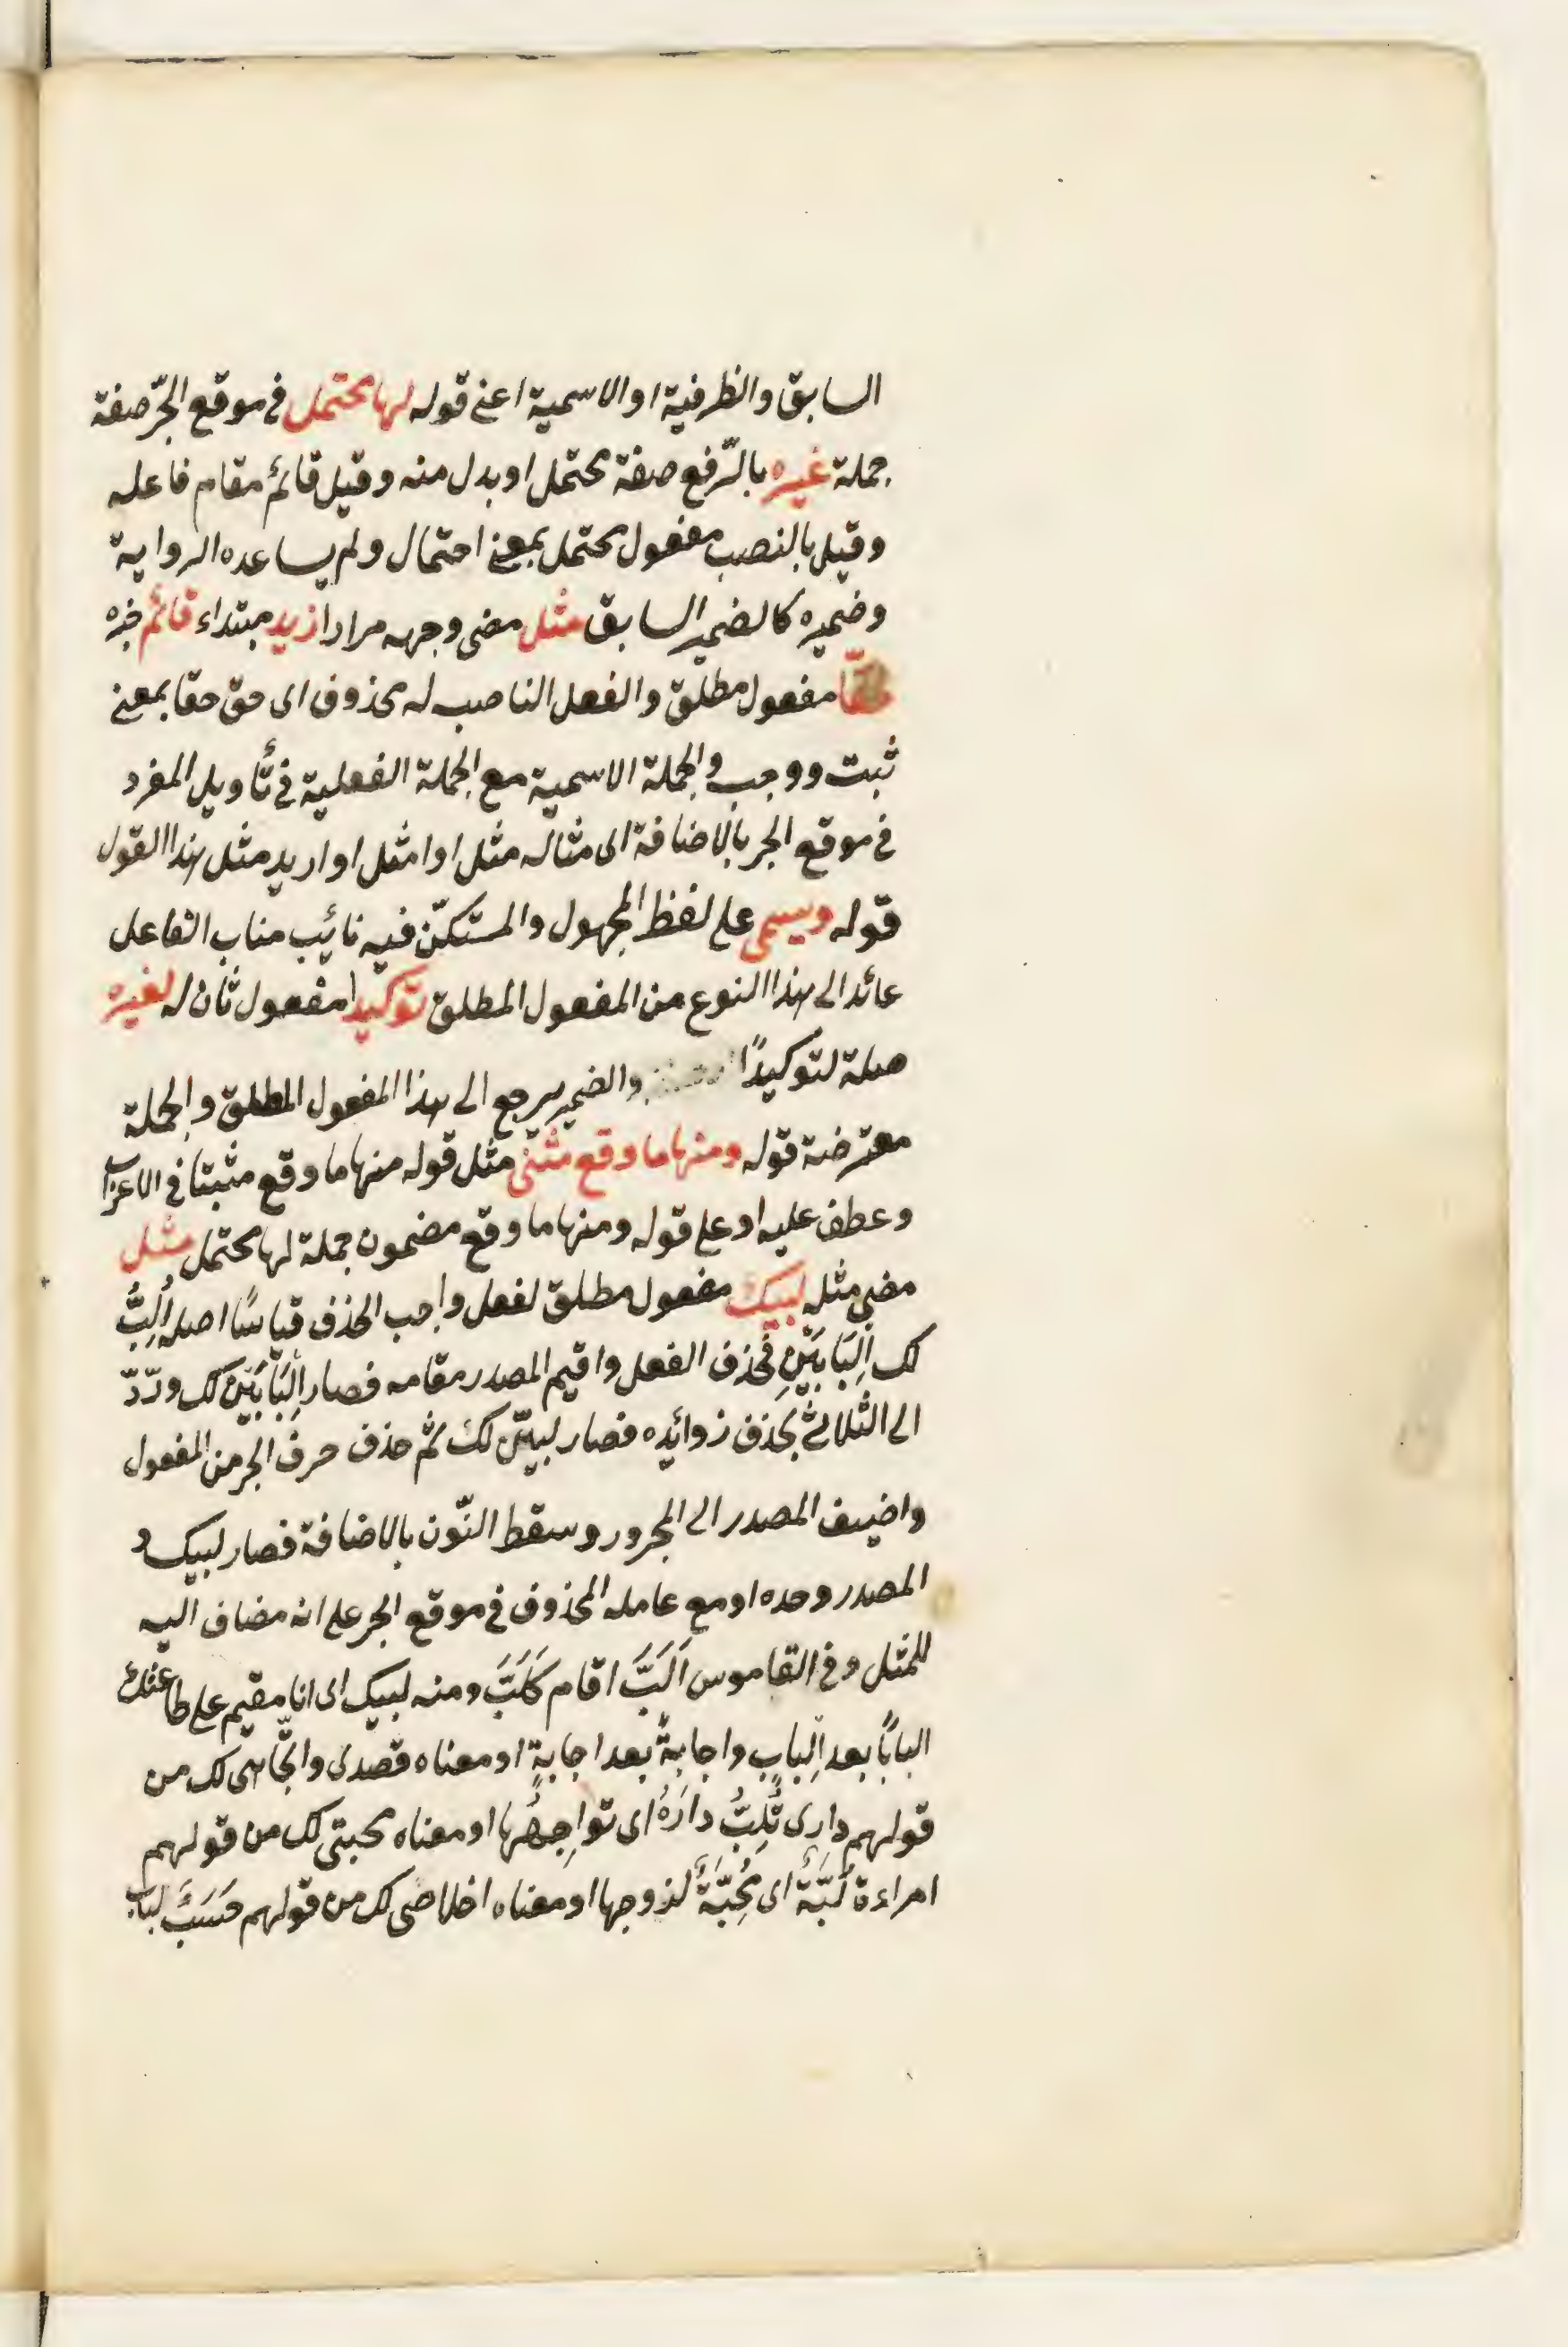 السابق والظرفية او الاسمية اعنى قوله لها محتمل فى موقع الجرّ صفة
جملة غيره بالرّفع صفة محتمل او بدل منه وقيل قائم مقام فاعله
وقيل بالنصب مفعول محتمل بمعنى احتمال ولم يساعده الرواية
وضميره كالضمير السابق مثل مضى وجهه مرارا زيد مبتداء قائم خبره
حقّا مفعول مطلق والفعل الناصب له محذوف اى حق حقا بمعنى
ثبت ووجب والجملة الاسمية مع الجملة الفعلية فى تأويل المفرد
فى موقع الجر بالاضافة اى مثاله مثل او امثل او اريد مثل هذا القول
قوله ويسمى على لفظ المجهول والمستكنّ فيه نائب مناب الفاعل
عائد الى هذا النوع من المفعول المطلق توكيدا مفعول ثان له لغيره
صلة لتوكيدًا والضمير يرجع الى هذا المفعول المطلق والجملة
معترضة قوله ومنها ما وقع مثنّى مثل قوله منها ما وقع مثبتا فى الاعراب
وعطف عليه او على قوله ومنها ما وقع مضمون جملة لها محتمل مثل
مضى مثله لبيك مفعول مطلق لفعل واجب الحذف قياسًا اصله اُلِبُّ
لك اِلْبَابَيْنِ فحذف الفعل واقيم المصدر مقامه فصار اِلْبَابَيْنِ لك وردّ
الى الثلاثى بحذف زوائده فصار لبين لك ثم حذف حرف الجر من المفعول
واضيف المصدر الى المجرور وسقط النّون بالاضافة فصار لبيك و
المصدر وحده او مع عامله المحذوف فى موقع الجر على انه مضاف اليه
للمثل وفى القاموس اَلَبَّ اقام كَلَبَّ ومنه لبيك اى انا مقيم على طاعتك
البابًا بعد اِلْبابٍ واجابةً بعد اجابةٍ او معناه قصدى واتّجاهى لك من
قولهم دارى تُلِبُّ دارَهُ اى تواجِهُها او معناه محبتى لك من قولهم
امراءة لَبَّةٌ اى مُحِبَّةٌ لزوجها او معناه اخلاصى لك من قولهم حَسَبٌ لباب